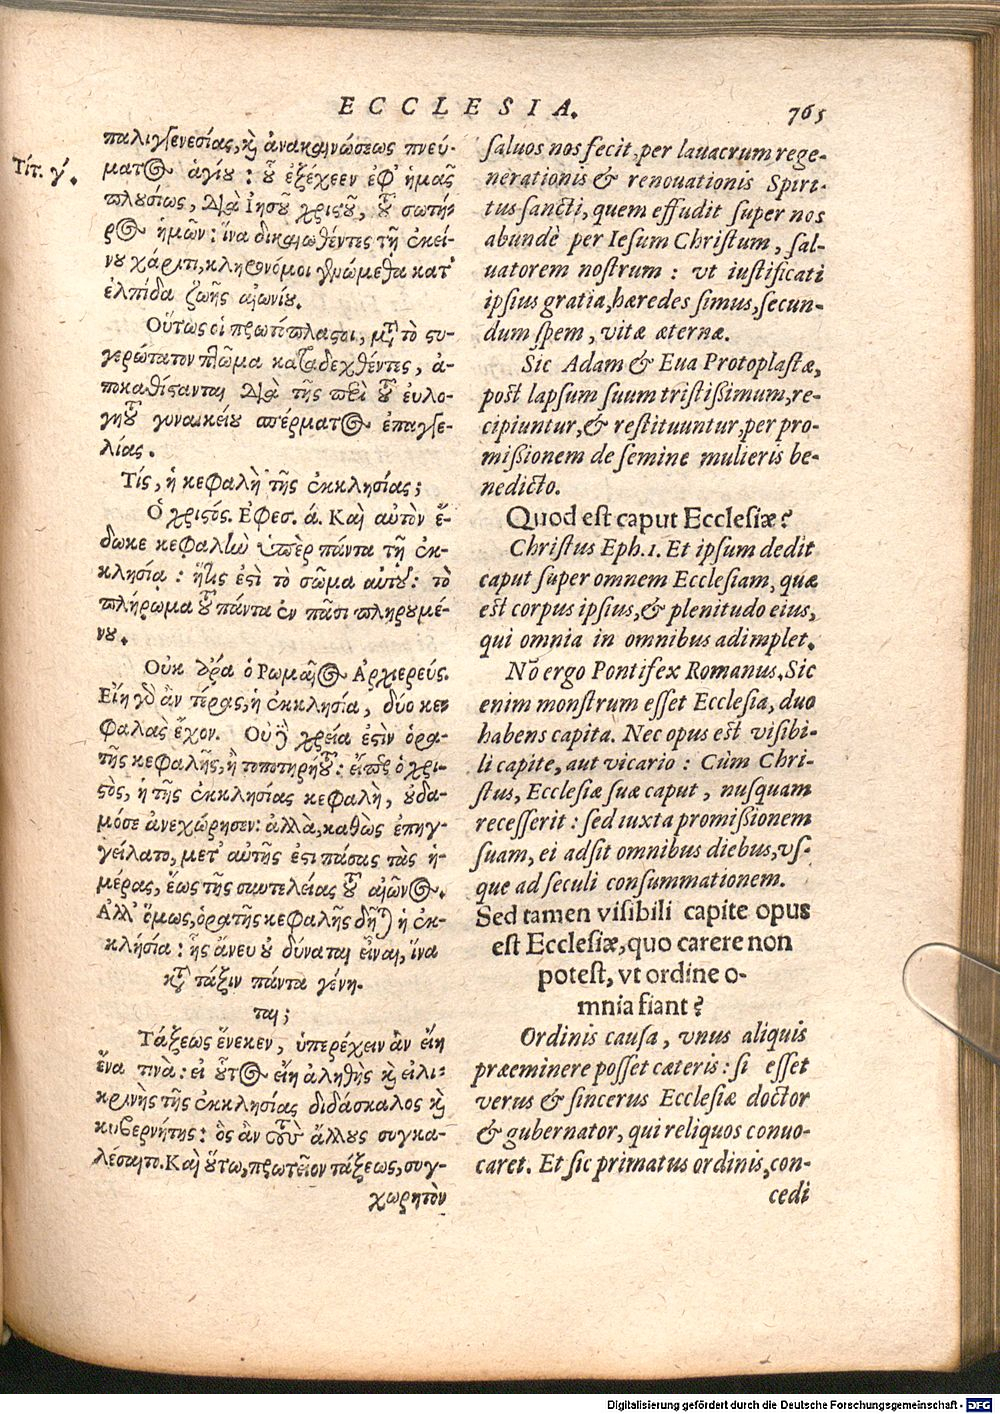 ECCLESIA.
765
Τίτ. γ'.
παλιγγενεσίας, καὶ ἀνακαινώσεως πνεύ-
ματος ἁγίου: οὗ ἐξέχεεν ἐφ' ἡμᾶς
πλουσίως, διὰ Ἰησοῦ χριστοῦ, τοῦ σωτῆ-
ρος ἡμῶν: ἵνα δικαιωθέντες τῇ ἐκεί-
νου χάριτι, κληρονόμοι γενώμεθα κατ'
ἐλπίδα ζωῆς αἰωνίου.
Οὕτως οἱ πρωτόπλαστοι, μετὰ τὸ στυ-
γερώτατον πτῶμα καταδεχθέντες, ἀ-
ποκαθίστανται διὰ τῆς περὶ τοῦ εὐλο-
γητοῦ γυναικείου σπέρματος ἐπαγγε-
λίας.
Τίς, ἡ κεφαλὴ τῆς ἐκκλησίας;
Ὁ χριστός. Εφεσ. ά. Καὶ αὐτὸν ἔ-
δωκε κεφαλὴν ὑπὲρ πάντα τῇ ἐκ-
κλησίᾳ: ἥτις ἐστὶ τὸ σῶμα αὐτοῦ: τὸ
πλήρωμα τοῦ πάντα ἐν πᾶσι πληρουμέ-
νου.
Οὐκ ἄρα ὁ Ρωμαῖος Ἀρχιερεύς.
Εἴη γὰρ ἂν τέρας, ἡ ἐκκλησία, δύο κε-
φαλὰς ἔχον. Οὐδὲ χρεία ἐστὶν ὁρα-
τῆς κεφαλῆς, ἢ τοποτηρητοῦ: εἴπερ ὁ χρι-
στὸς, ἡ τῆς ἐκκλησίας κεφαλὴ, οὐδα-
μόσε ἀνεχώρησεν: ἀλλὰ, καθὼς ἐπηγ-
γείλατο, μετ' αὐτῆς ἐστι πάσας τὰς ἡ-
μέρας, ἕως τῆς συντελείας τοῦ αἰῶνος.
Ἀλλ' ὅμως, ὁρατῆς κεφαλῆς δεῖται ἡ ἐκ-
κλησία: ἧς ἄνευ οὐ δύναται εἶναι, ἵνα
κατὰ τάξιν πάντα γένη-
ται;
Τάξεως ἕνεκεν, ὑπερέχειν ἂν εἴη
ἕνα τινὰ: εἰ οὗτος εἴη ἀληθὴς καὶ εἰλι-
κρινὴς τῆς ἐκκλησίας διδάσκαλος καὶ
κυβερνήτης: ὃς ἂν τοὺς ἄλλους συγκα-
λέσαιτο. Καὶ οὕτω, πρωτεῖον τάξεως, συγ-
χωρητὸν
saluos nos fecit, per lauacrum rege-
nerationis & renouationis Spiri-
tus sancti, quem effudit super nos
abundè per Iesum Christum, sal-
uatorem nostrum: vt iustificati
ipsius gratia, hæredes simus, secun-
dum spem, vitæ æternæ.
Sic Adam & Eua Protoplastæ,
post lapsum suum tristißimum, re-
cipiuntur, & restituuntur, per pro-
mißionem de semine mulieris be-
nedicto.
Quod est caput Ecclesiæ?
Christus Eph. 1. Et ipsum dedit
caput super omnem Ecclesiam, quæ
est corpus ipsius, & plenitudo eius,
qui omnia in omnibus adimplet.
Nō ergo Pontifex Romanus. Sic
enim monstrum esset Ecclesia, duo
habens capita. Nec opus est visibi-
li capite, aut vicario: Cùm Chri-
stus, Ecclesiæ suæ caput, nusquam
recesserit: sed iuxta promißionem
suam, ei adsit omnibus diebus, vs-
que ad seculi consummationem.
Sed tamen visibili capite opus
est Ecclesiæ, quo carere non
potest, vt ordine o-
mnia fiant?
Ordinis causa, vnus aliquis
præeminere posset cæteris: si esset
verus & sincerus Ecclesiæ doctor
& gubernator, qui reliquos conuo-
caret. Et sic primatus ordinis, con-
cedi
Digitalisierung gefördert durch die Deutsche Forschungsgemeinschaft - DFG